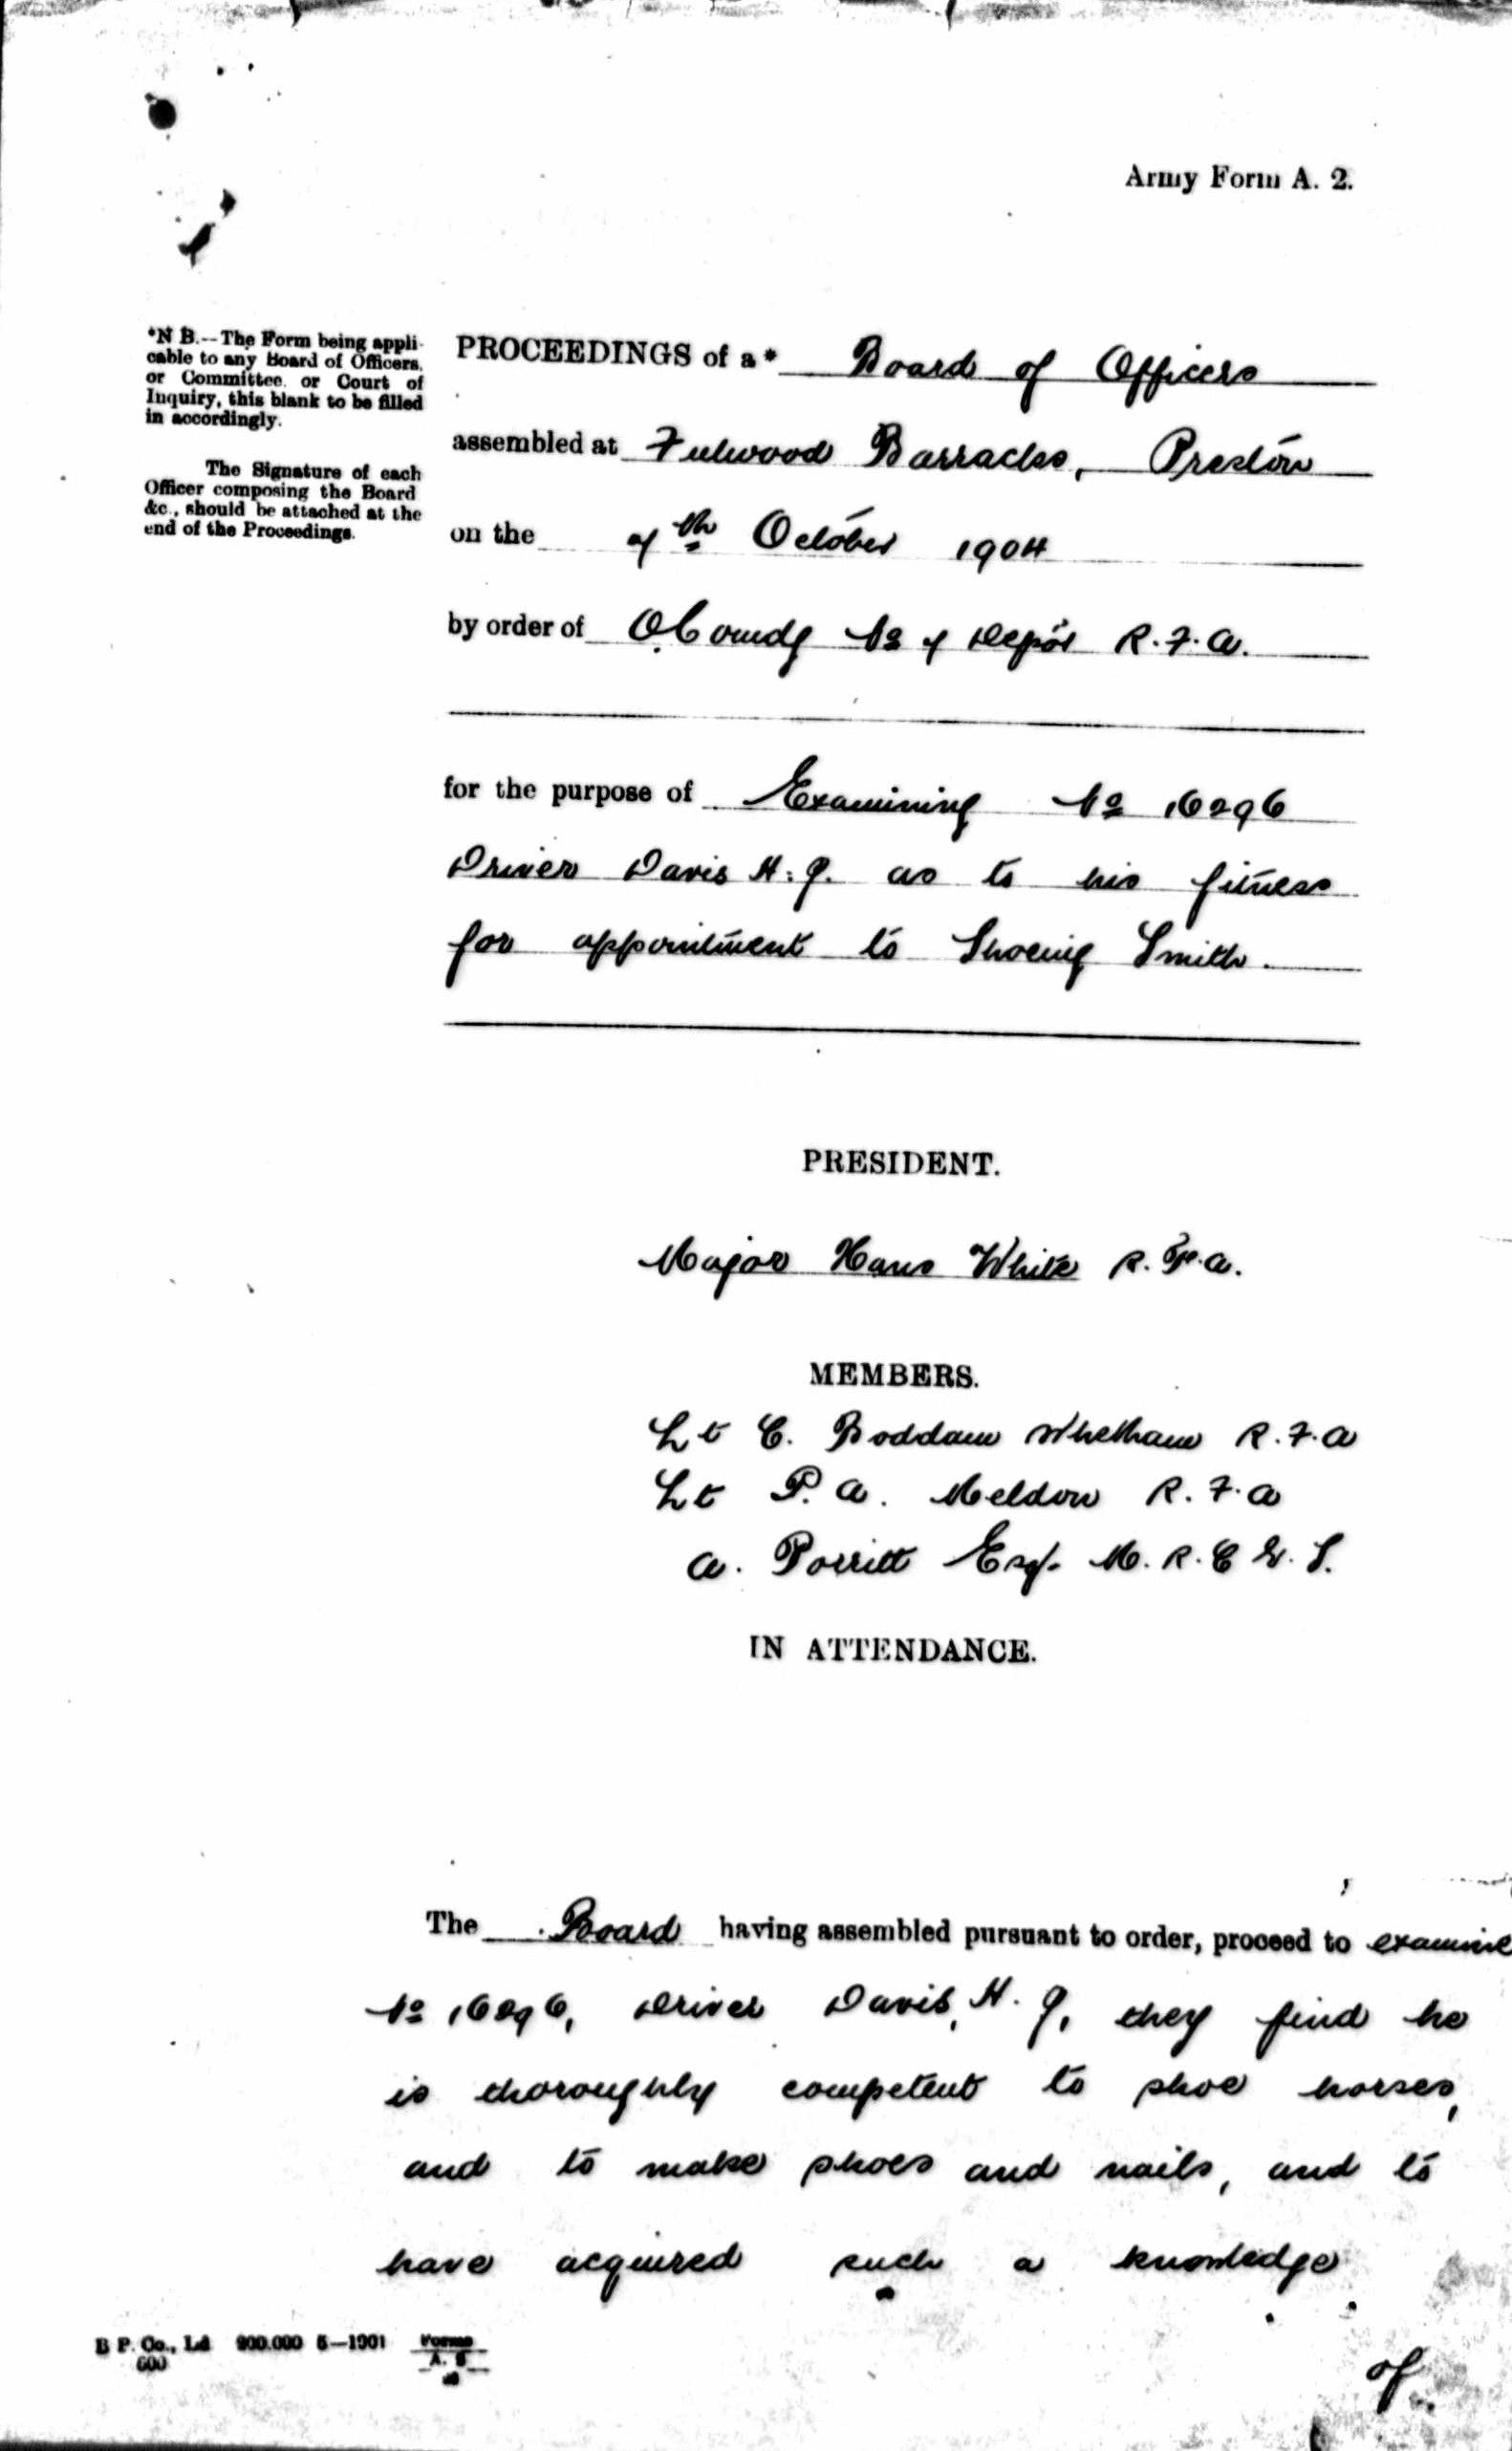 Army Form A. 2.
*N B.--The Form being appli-
cable to any Board of Officers,
or Committee. or Court of
Inquiry, this blank to be filled
in accordingly.
The Signature of each
Officer composing the Board
&c., should be attached at the
end of the Proceedings.
PROCEEDINGS of a* Board of Officers
assembled at Fulwood Barracks, Preston
on the 7th October 1904
by order of O.Comdg No 4 Depôt R.F.A.
for the purpose of Examining No 16296
Driver Davis H. J. as to his fitness
for appointment to Shoeing Smith.
PRESIDENT.
Major Hans White R.F.A.
MEMBERS.
Lt C. Boddam Whetham R.F.A
Lt P. A. Meldon R.F.A
A. Porritt Esq. M.R.C.V.S.
IN ATTENDANCE.
The Board having assembled pursuant to order, proceed to examine
No 16296, Driver Davis, H. J, they find he
is thoroughly competent to shoe horses,
and to make shoes and nails, and to
have acquired such a knowledge
of
B P. Co., Ld 900.000 5—1901 Forms
600 A. 2